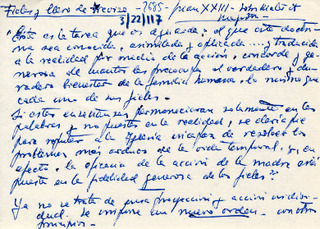 Fieles y clero de - 7685 - Juan XXIII -
3/22/117
"Esta es la tarea que os aguarda: el que esta doctrina sea conocida, asimilada y aplicada ... y traducida
a la realidad por medio de la acción, concorde y generosa de cuantos les preocupa el verdadero y duradero bienestar de la familia humana, lo mismo que
cada uno de sus fieles.
Si estas enseñanzas permanecieran solamente en las
palabras y no puestas en la realidad, se decía que
para reputar a la Iglesia incapaz de resolver los
problemas más arduos de la orden temporal, y, en
efecto, la eficacia de la acción de la madre está
puesta en la fidelidad generosa de los fieles".
Ya no se trata de pura proyección y acción individual. Se impone un nuevo orden - con otros
principios -